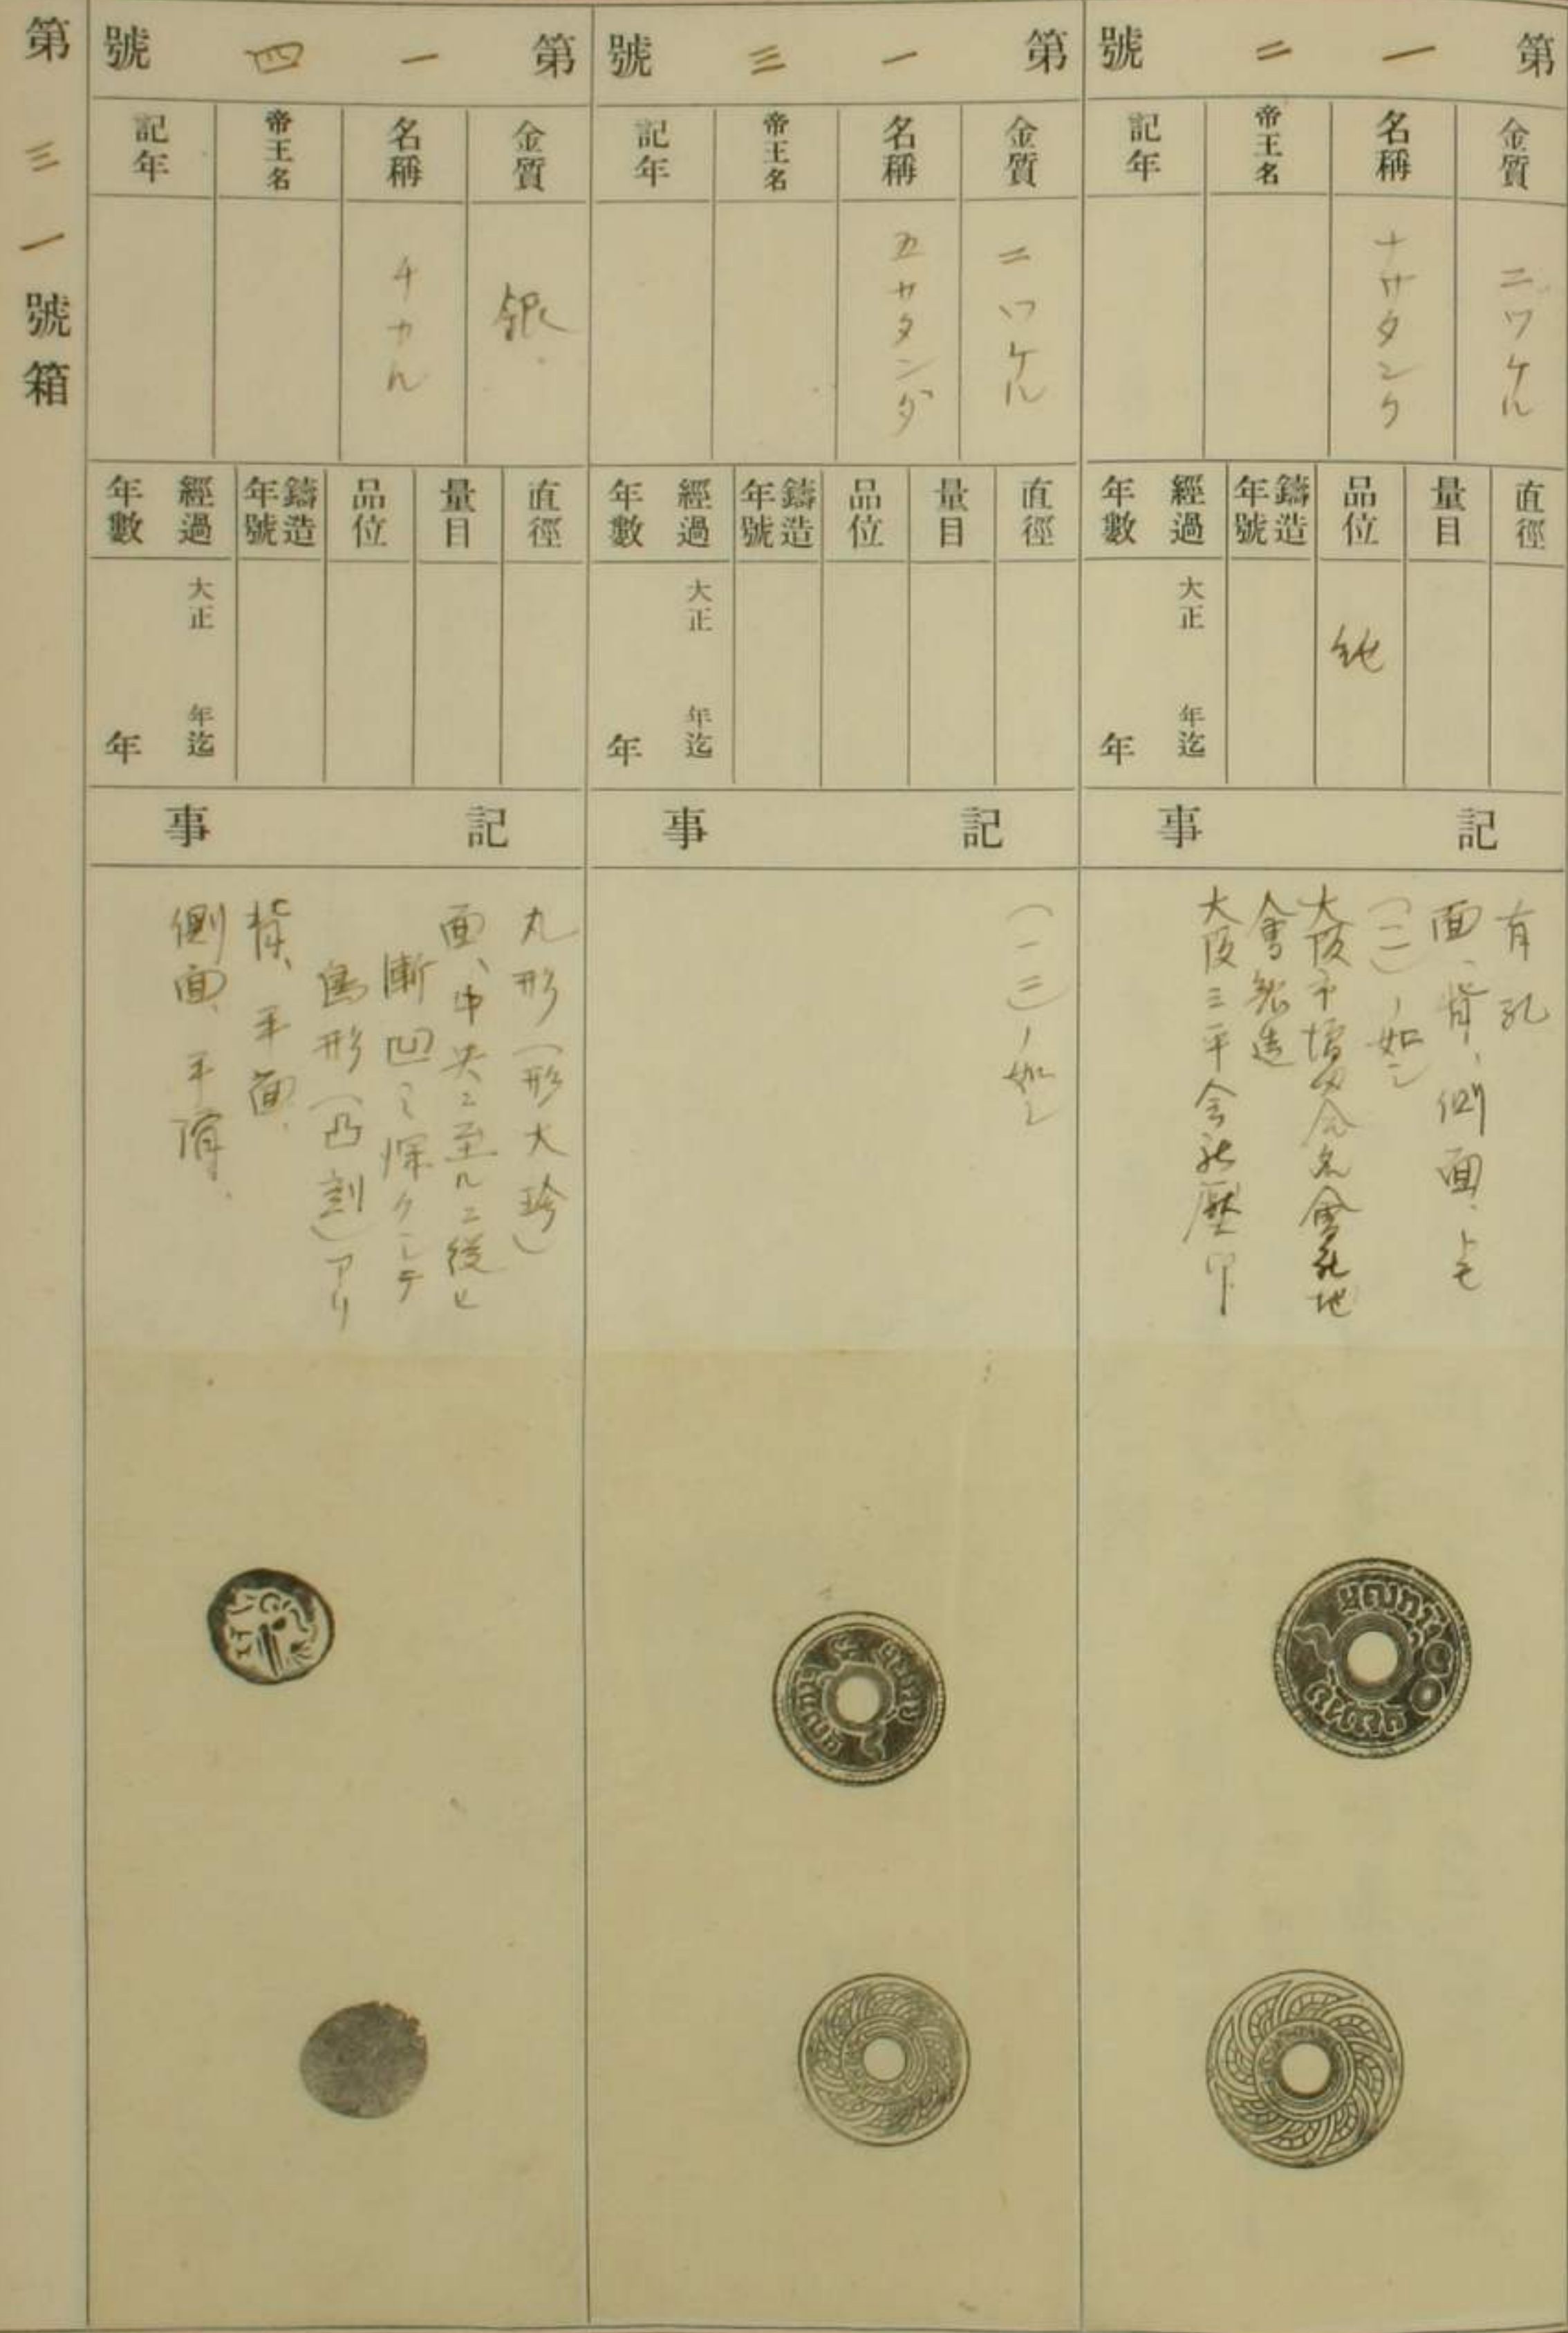 第一二號
金質
ニツケル
名稱
十サタンク
帝王名
記年
直徑
量目
品位
純
鑄造年號
經過年數
大正 年迄
年
記事
有孔
面、背、側面、トモ
(一一)ノ如シ
會製造
第一三號
金質
ニツケル
名稱
五サタンク
帝王名
記年
直徑
量目
品位
鑄造年號
經過年數
大正 年迄
年
記事
(一二)ノ如シ
第一四號
金質
銀
名稱
チカル
帝王名
記年
直徑
量目
品位
鑄造年號
經過年數
大正 年迄
年
記事
丸形(形大珍)
面、中央ニ至ルニ従ヒ
漸凹ミ深クシテ
鳥形(凸刻)アリ
背、平面、
側面、平滑、
第三一號箱